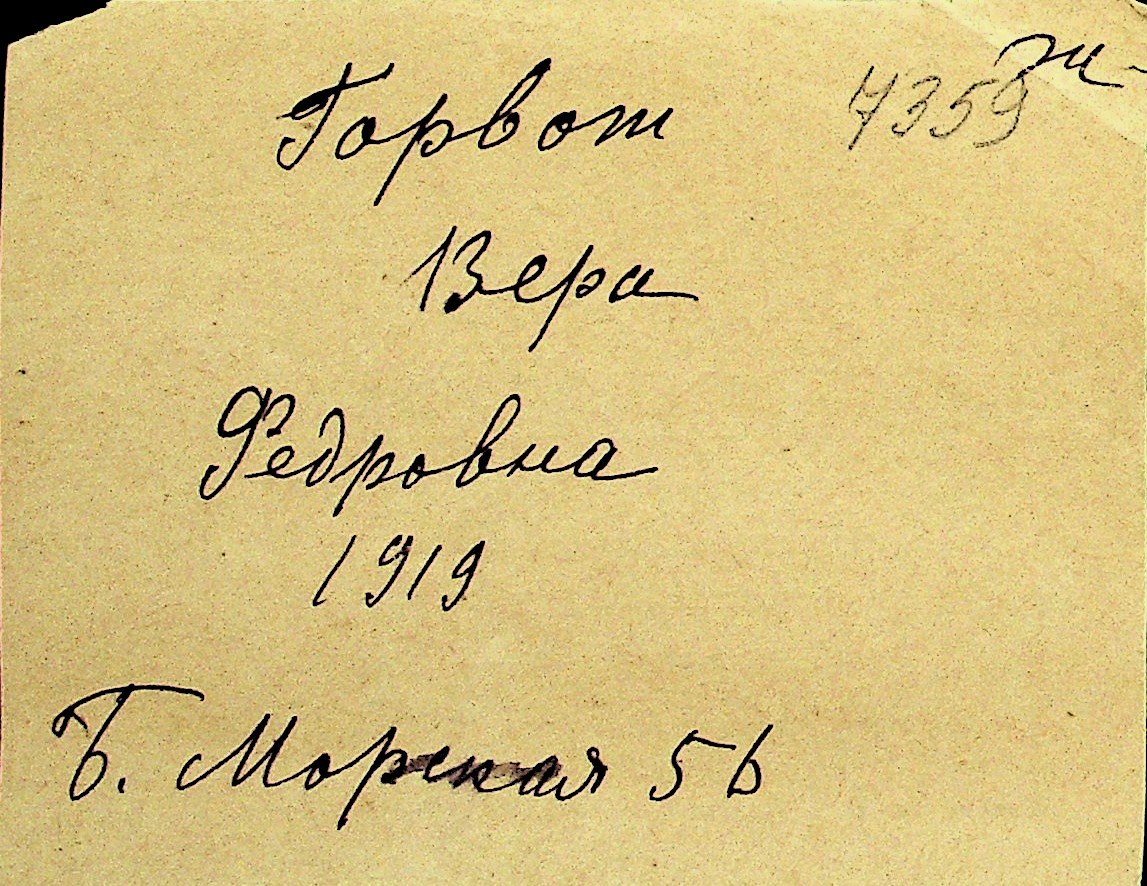 7359
Горвот
Вера
Федровна
1919
Б. Морская 56